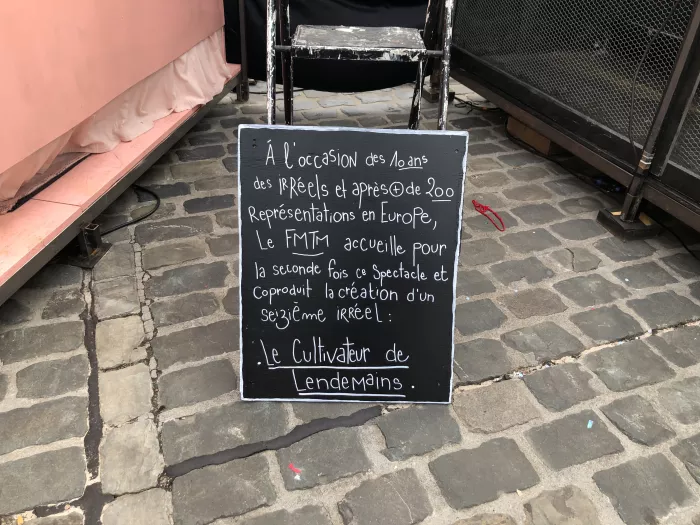 À l'occasion des 10 ans
des irréels et après ⊕ de 200
Représentations en Europe,
Le FMTM accueille pour
la seconde fois ce Spectacle et
Coproduit la création d'un
seizième irréel :
. Le Cultivateur de
Lendemains .